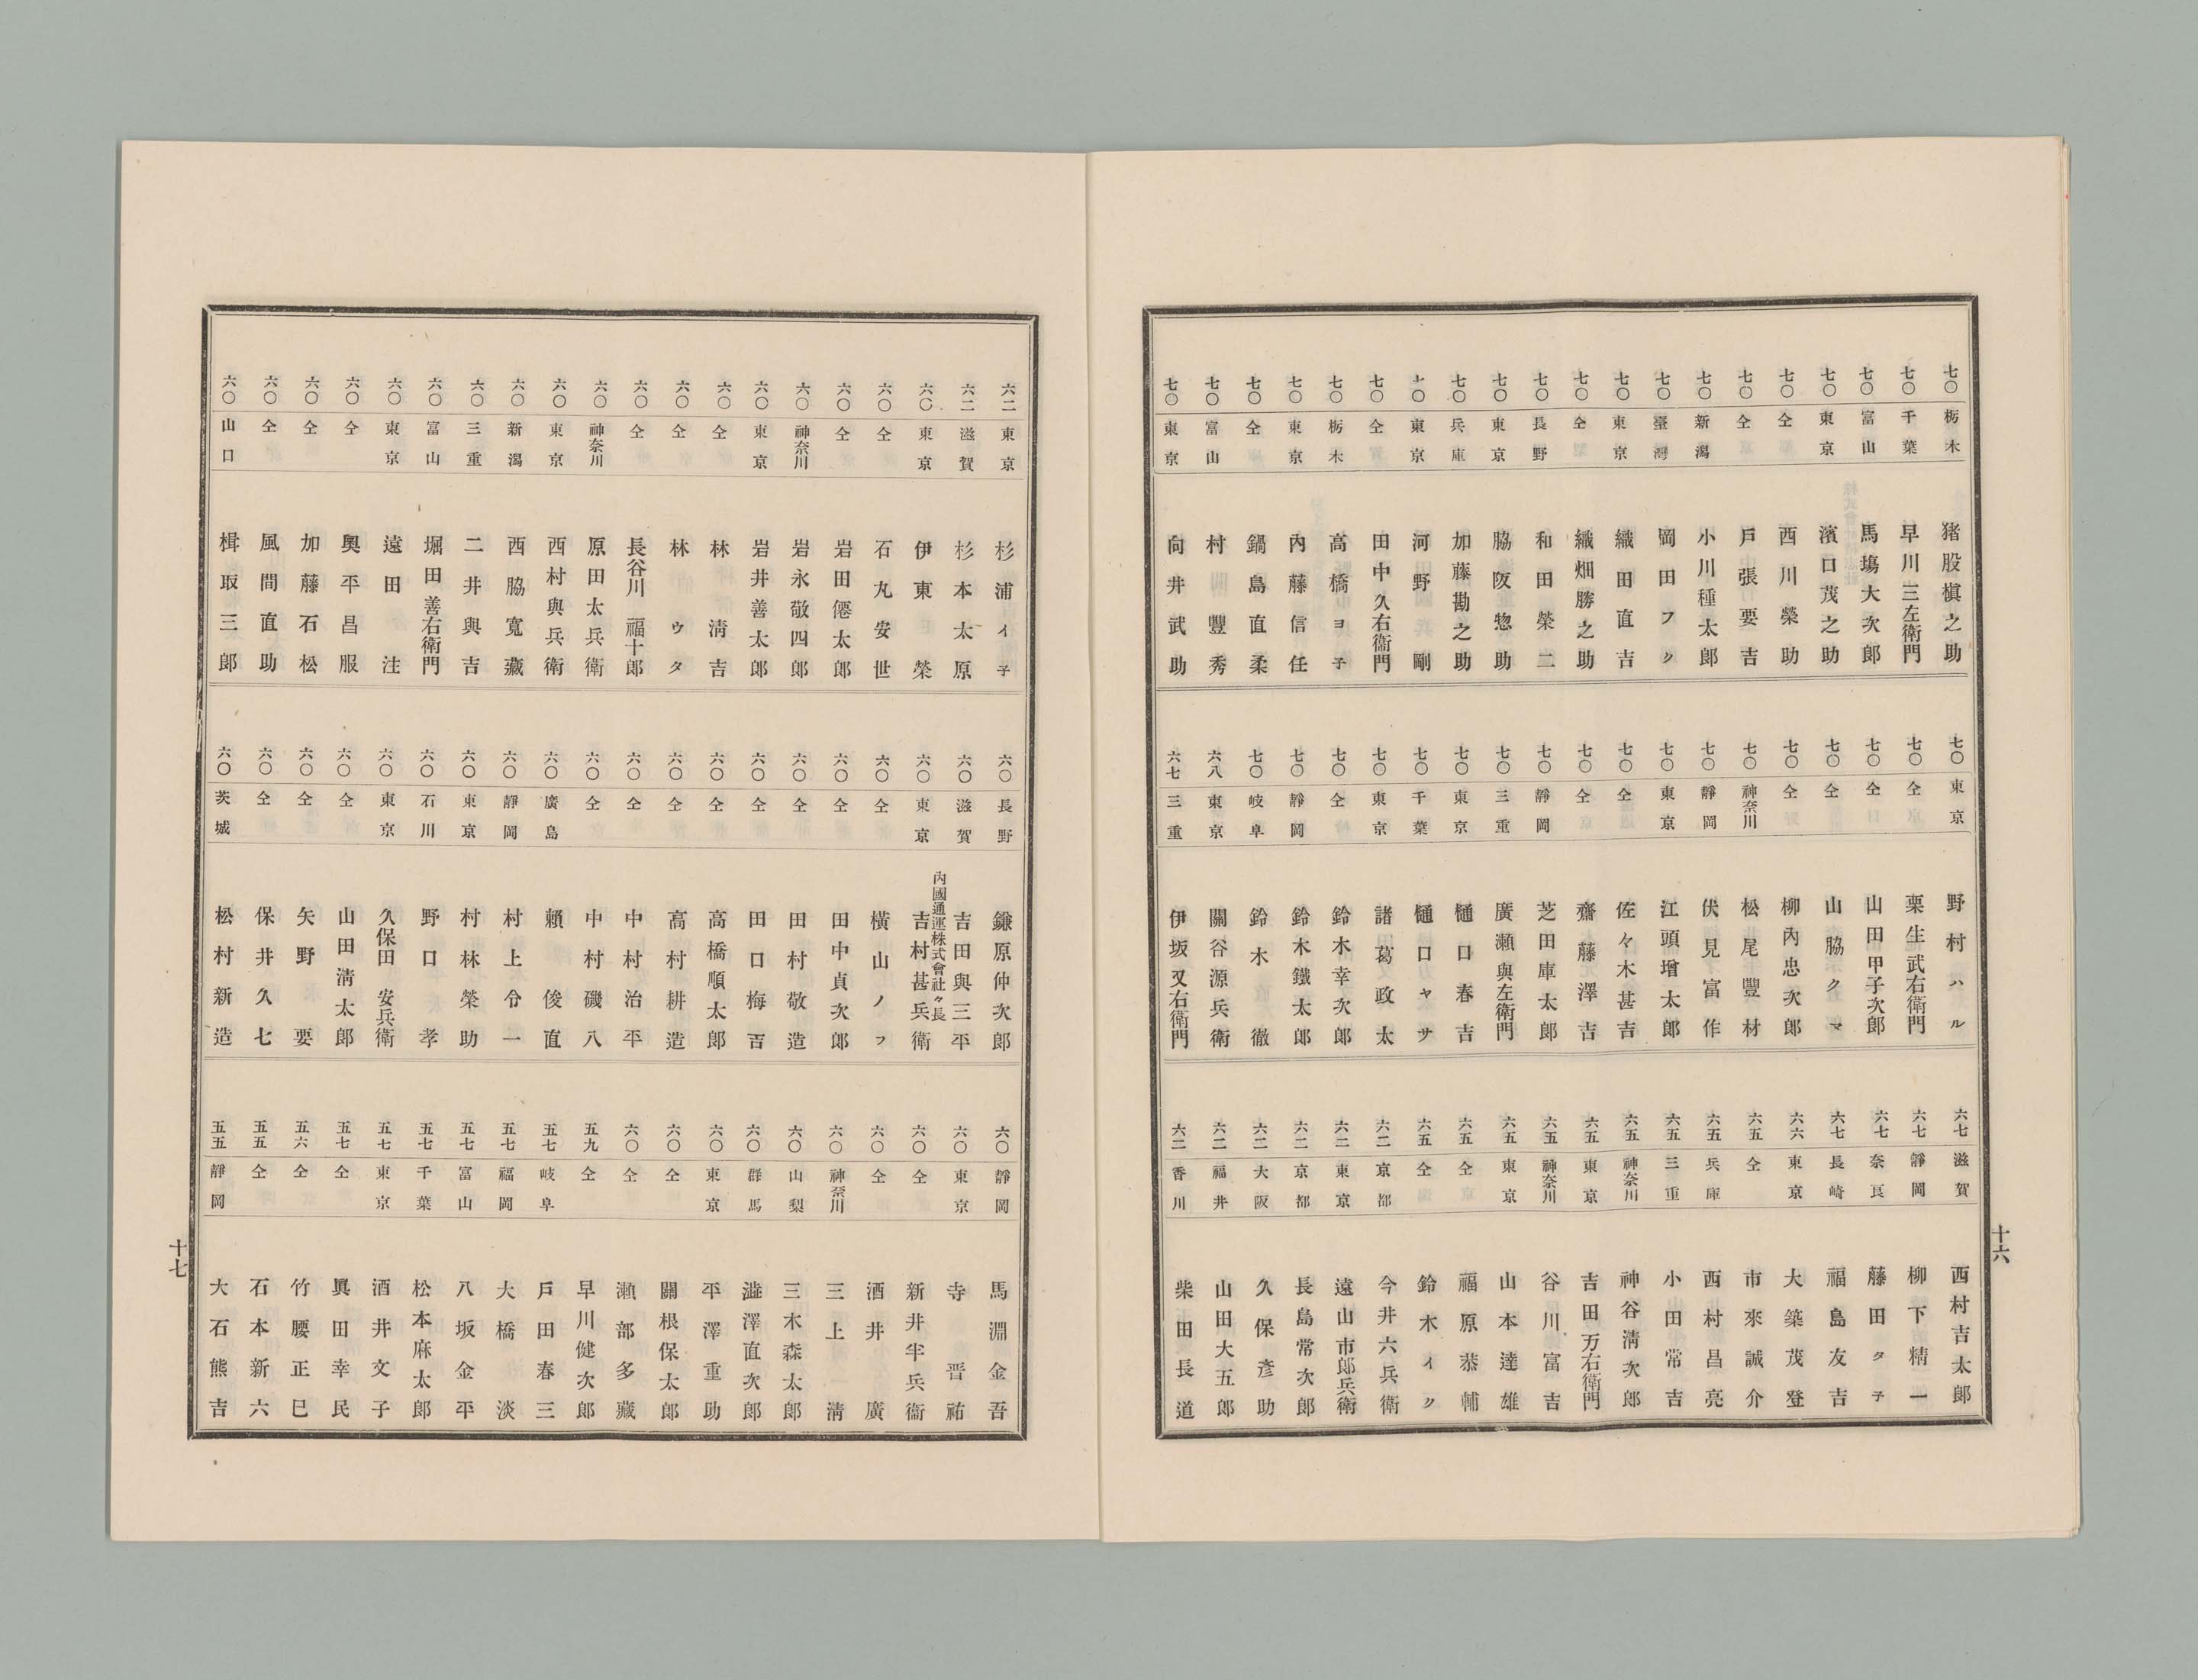 十六
七〇 栃木 猪股槇之助
七〇 千葉 早川三左衛門
七〇 富山 馬塲大次郎
七〇 東京 濱口茂之助
七〇 仝 西川榮助
七〇 仝 戸張要吉
七〇 新潟 小川種太郎
七〇 臺灣 岡田フク
七〇 東京 織田直吉
七〇 仝 織畑勝之助
七〇 長野 和田榮二
七〇 東京 脇阪惣助
七〇 兵庫 加藤勘之助
七〇 東京 河野剛
七〇 仝 田中久右衞門
七〇 栃木 高橋ヨ子
七〇 東京 內藤信任
七〇 仝 鍋島直柔
七〇 富山 村豐秀
七〇 東京 向井武助
七〇 東京 野村ハル
七〇 仝 栗生武右衛門
七〇 仝 山田甲子次郎
七〇 仝 山脇クマ
七〇 仝 柳內忠次郎
七〇 神奈川 松尾豐材
七〇 靜岡 伏見富作
七〇 東京 江頭增太郎
七〇 仝 佐々木甚吉
七〇 仝 齋藤澤吉
七〇 靜岡 芝田庫太郎
七〇 三重 廣瀨與左衛門
七〇 東京 樋口春吉
七〇 千葉 樋口ヤサ
七〇 東京 諸葛政太
七〇 仝 鈴木幸次郎
七〇 靜岡 鈴木鐵太郎
七〇 岐阜 鈴木徹
六八 東京 關谷源兵衛
六七 三重 伊坂又右衛門
六七 滋賀 西村吉太郎
六七 靜岡 柳下精一
六七 奈良 藤田タ子
六七 長崎 福島友吉
六六 東京 大築茂登
六五 仝 市來誠介
六五 兵庫 西村昌亮
六五 三重 小田常吉
六五 神奈川 神谷淸次郎
六五 東京 吉田万右衛門
六五 神奈川 谷川富吉
六五 東京 山本達雄
六五 仝 福原恭輔
六五 仝 鈴木イク
六二 京都 今井六兵衛
六二 東京 遠山市郎兵衛
六二 京都 長島常次郎
六二 大阪 久保彥助
六二 福井 山田大五郎
六二 香川 柴田長道
六二 東京 杉浦イ子
六二 滋賀 杉本太原
六〇 東京 伊東榮
六〇 仝 石丸安世
六〇 仝 岩田僊太郎
六〇 神奈川 岩永敬四郎
六〇 東京 岩井善太郎
六〇 仝 林淸吉
六〇 仝 林ウタ
六〇 仝 長谷川福十郎
六〇 神奈川 原田太兵衛
六〇 東京 西村與兵衛
六〇 新潟 西脇寬藏
六〇 三重 二井與吉
六〇 富山 堀田善右衛門
六〇 東京 遠田注
六〇 仝 奧平昌服
六〇 仝 加藤石松
六〇 仝 風間直助
六〇 山口 楫取三郎
六〇 長野 鎌原仲次郎
六〇 滋賀 吉田與三平
六〇 東京 內國通運株式會社々長 吉村甚兵衛
六〇 仝 橫山ノフ
六〇 仝 田中貞次郎
六〇 仝 田村敬造
六〇 仝 田口梅吉
六〇 仝 高橋順太郎
六〇 仝 高村耕造
六〇 仝 中村治平
六〇 仝 中村磯八
六〇 廣島 賴俊直
六〇 靜岡 村上令一
六〇 東京 村林榮助
六〇 石川 野口孝
六〇 東京 久保田安兵衛
六〇 仝 山田淸太郎
六〇 仝 矢野要
六〇 仝 保井久七
六〇 茨城 松村新造
六〇 靜岡 馬淵金吾
六〇 東京 寺晋祐
六〇 仝 新井半兵衞
六〇 仝 酒井廣
六〇 神奈川 三上淸
六〇 山梨 三木森太郎
六〇 群馬 澁澤直次郎
六〇 東京 平澤重助
六〇 仝 關根保太郎
六〇 仝 瀨部多藏
五九 仝 早川健次郎
五七 岐阜 戸田春三
五七 福岡 大橋淡
五七 富山 八坂金平
五七 千葉 松本麻太郎
五七 東京 酒井文子
五七 仝 眞田幸民
五六 仝 竹腰正巳
五五 仝 石本新六
五五 靜岡 大石熊吉
十七